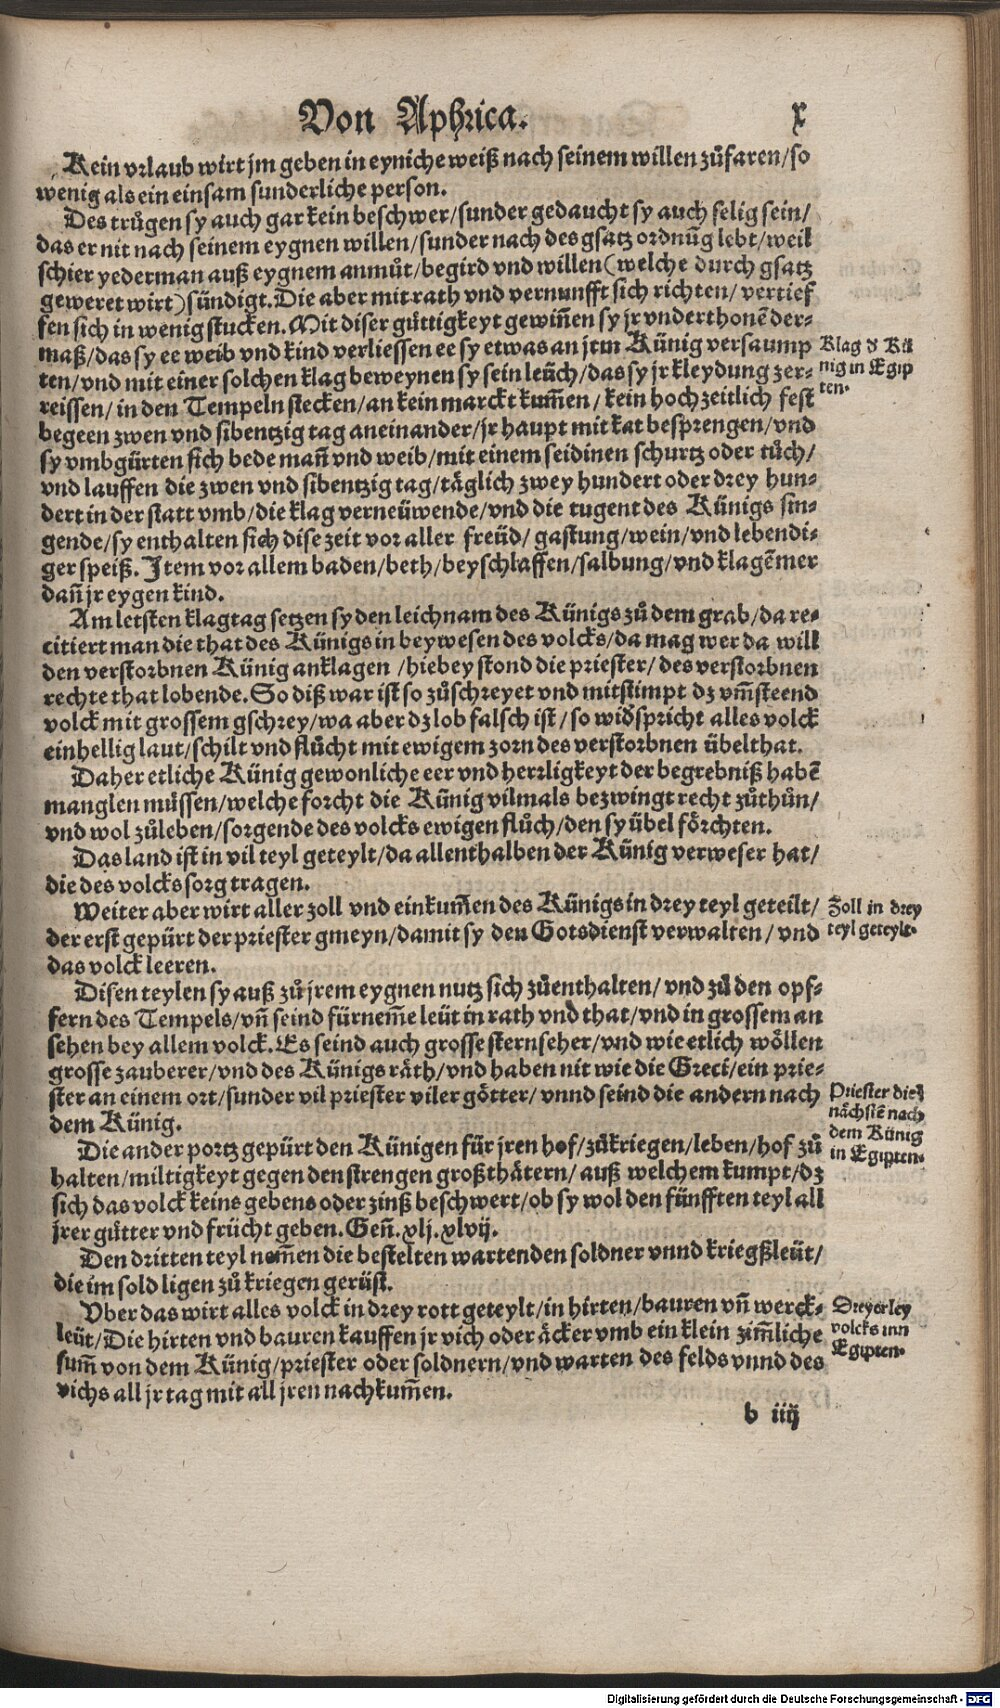 Von Aphrica. x
Kein vrlaub wirt jm geben in eyniche weiß nach seinem willen zůfaren/so
wenig als ein einsam sunderliche person.
Des trůgen sy auch gar kein beschwer/sunder gedaucht sy auch selig sein/
das er nit nach seinem eygnen willen/sunder nach des gsatz ordnũg lebt/weil
schier yederman auß eygnem anmůt/begird vnd willen(welche durch gsatz
geweret wirt)sündigt.Die aber mit rath vnd vernunfft sich richten/vertief
fen sich in wenig stucken.Mit diser gůttigkeyt gewiñen sy jr vnderthonẽ der⸗
maß/das sy ee weib vnd kind verliessen ee sy etwas an jrm Künig versaump
Klag ď Kü
nig in Egip
ten.
ten/vnd mit einer solchen klag beweynen sy sein leüch/das sy jr kleydung zer⸗
reissen/in den Tempeln stecken/an kein marckt kum̃en/kein hochzeitlich fest
begeen zwen vnd sibentzig tag aneinander/jr haupt mit kat besprengen/vnd
sy vmbgürten sich bede mañ vnd weib/mit einem seidinen schurtz oder tůch/
vnd lauffen die zwen vnd sibentzig tag/täglich zwey hundert oder drey hun⸗
dert in der statt vmb/die klag verneüwende/vnd die tugent des Künigs sin⸗
gende/sy enthalten sich dise zeit vor aller freüd/gastung/wein/vnd lebendi⸗
ger speiß. Item vor allem baden/beth/beyschlaffen/salbung/vnd klagẽ mer
dañ jr eygen kind.
Am letsten klagtag setzen sy den leichnam des Künigs zů dem grab/da re⸗
citiert man die that des Künigs in beywesen des volcks/da mag wer da will
den verstorbnen Künig anklagen/hiebey stond die priester/des verstorbnen
rechte that lobende.So diß war ist so zůschreyet vnd mitstimpt dz vm̃steend
volck mit grossem gschrey/wa aber dz lob falsch ist/so wiďspricht alles volck
einhellig laut/schilt vnd flůcht mit ewigem zorn des verstorbnen übelthat.
Daher etliche Künig gewonliche eer vnd herrligkeyt der begrebniß habẽ
manglen müssen/welche forcht die Künig vilmals bezwingt recht zůthůn/
vnd wol zůleben/sorgende des volcks ewigen flůch/den sy übel förchten.
Das land ist in vil teyl geteylt/da allenthalben der Künig verweser hat/
die des volcks sorg tragen.
Weiter aber wirt aller zoll vnd einkum̃en des Künigs in drey teyl geteilt/
Zoll in drey
teyl geteylt.
der erst gepürt der priester gmeyn/damit sy den Gotsdienst verwalten/vnd
das volck leeren.
Disen teylen sy auß zů jrem eygnen nutz sich zůenthalten/vnd zů den opf⸗
fern des Tempels/vñ seind fürnem̃e leüt in rath vnd that/vnd in grossem an
sehen bey allem volck.Es seind auch grosse sternseher/vnd wie etlich wöllen
grosse zauberer/vnd des Künigs räth/vnd haben nit wie die Greci/ein prie⸗
ster an einem ort/sunder vil priester viler götter/vnnd seind die andern nach
Priester die
nächstẽ nach
dem Künig
in Egipten.
dem Künig.
Die ander portz gepürt den Künigen für jren hof/zůkriegen/leben/hof zů
halten/miltigkeyt gegen den strengen großthätern/auß welchem kumpt/dz
sich das volck keins gebens oder zinß beschwert/ob sy wol den fünfften teyl all
jrer gůtter vnd frücht geben.Geñ.xlj.xlvij.
Den dritten teyl nem̃en die bestelten wartenden soldner vnnd kriegßleüt/
die im sold ligen zů kriegen gerüst.
Vber das wirt alles volck in drey rott geteylt/in hirten/bauren vñ werck⸗
Dreyerley
volcks inn
Egipten.
leüt/Die hirten vnd bauren kauffen jr vich oder äcker vmb ein klein zim̃liche
sum̃ von dem Künig/priester oder soldnern/vnd warten des felds vnnd des
vichs all jr tag mit all jren nachkum̃en.
b iij
Digitalisierung gefördert durch die Deutsche Forschungsgemeinschaft - DFG